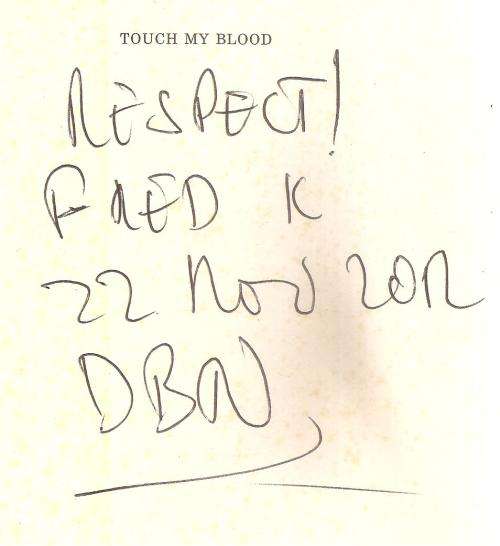 TOUCH MY BLOOD
RESPECT!
FRED K
22 NOV 2012
DBN